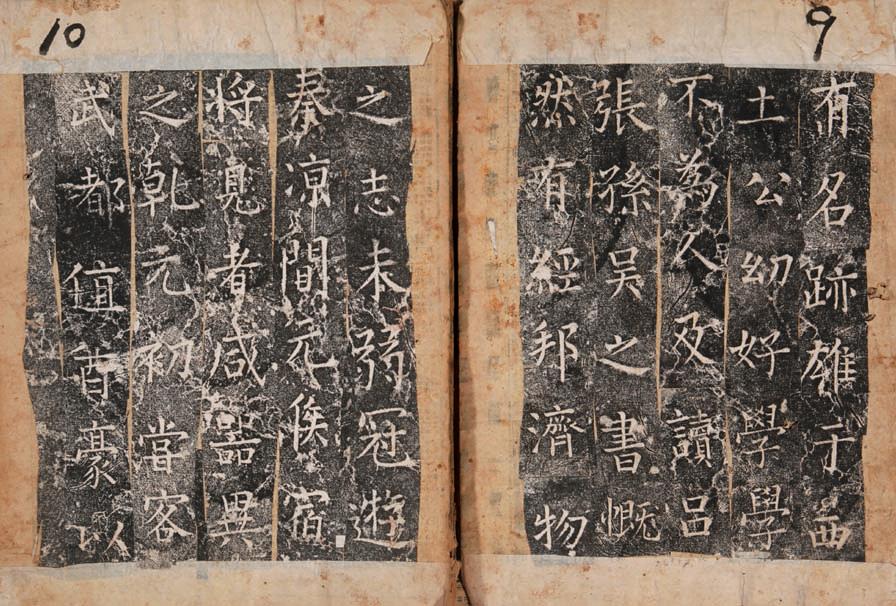 9
有名跡雄于西
土公幼好學學
不為人及讀呂
張孫吳之書慨
然有經邦濟物
10
之志未弱冠遊
秦涼間元侯宿
將者咸器異
之乾元初嘗客
武都值酋豪以